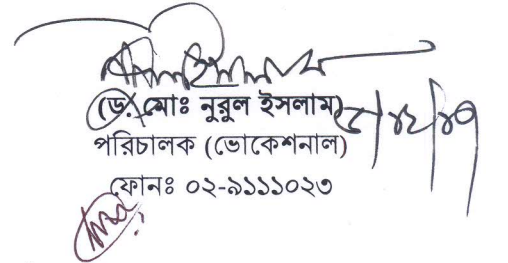 (ড. মোঃ নুরুল ইসলাম)
পরিচালক (ভোকেশনাল)
ফোনঃ ০২-৯১১১০২৩